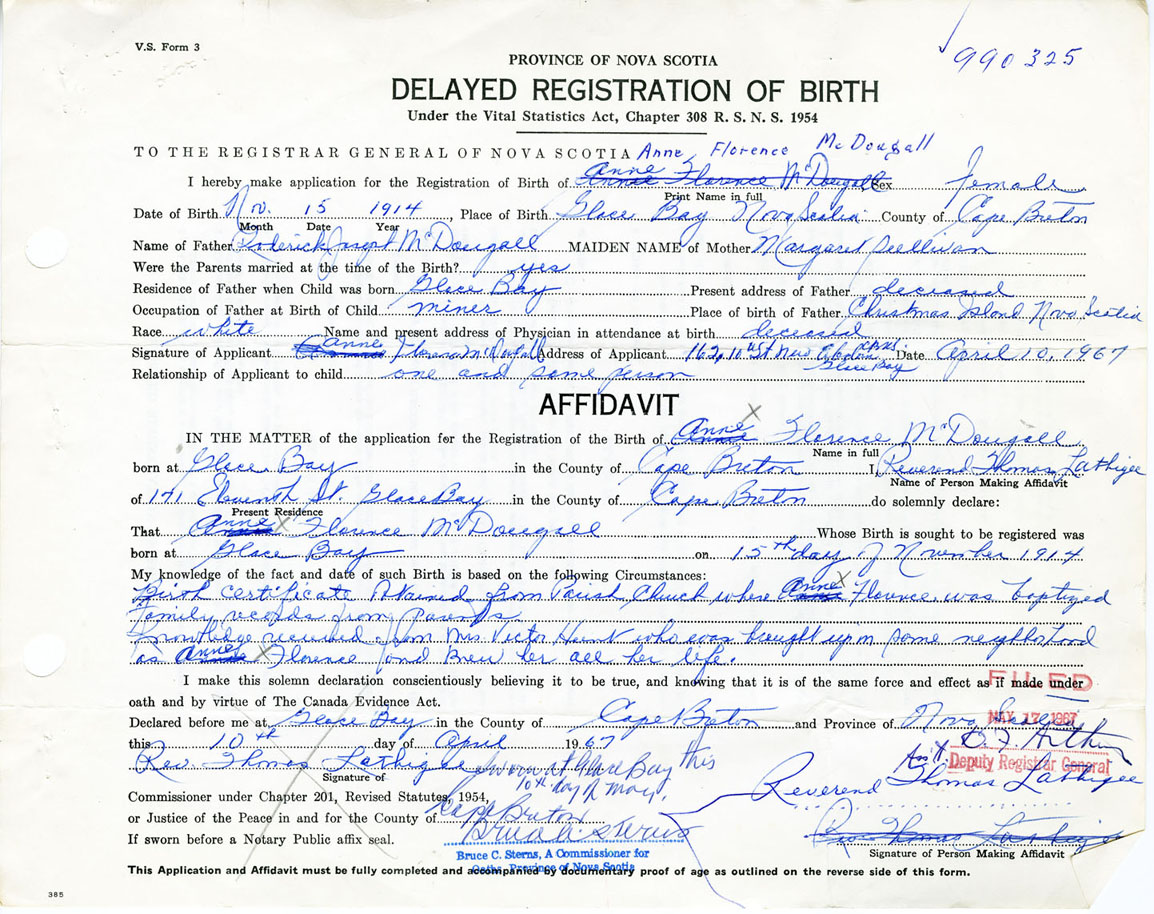 V.S. Form 3
990325
PROVINCE OF NOVA SCOTIA
DELAYED REGISTRATION OF BIRTH
Under the Vital Statistics Act, Chapter 308 R. S. N. S. 1954
TO THE REGISTRAR GENERAL OF NOVA SCOTIA Anne Florence McDougall
I hereby make application for the Registration of Birth of Anne Florence McDougall Sex female
Print Name in full
Date of Birth Nov. 15 1914, Place of Birth Glace Bay Nova Scotia County of Cape Breton
Month Date Year
Name of Father Roderick Joseph McDougall MAIDEN NAME of Mother Margaret Sullivan
Were the Parents married at the time of the Birth? yes
Residence of Father when Child was born Glace Bay Present address of Father deceased
Occupation of Father at Birth of Child miner Place of birth of Father Christmas Island Nova Scotia
Race white Name and present address of Physician in attendance at birth deceased
Signature of Applicant Anne Florence McDougall Address of Applicant St. New Glace Bay Date April 10, 1967
Relationship of Applicant to child one and same person
AFFIDAVIT
IN THE MATTER of the application for the Registration of the Birth of Anne Florence McDougall
Name in full
born at Glace Bay in the County of Cape Breton I Reverend Thomas Lathigee
Name of Person Making Affidavit
of 171 Eleventh St. Glace Bay in the County of Cape Breton do solemnly declare:
Present Residence
That Anne Florence McDougall Whose Birth is sought to be registered was
born at Glace Bay on 15th day of November 1914
My knowledge of the fact and date of such Birth is based on the following Circumstances:
Birth certificate obtained from Parish Church where Anne Florence was baptized
family records from Parents
Knowledge received from Mrs Victor who was brought up in same neighborhood
as Anne Florence and knew her all her life.
I make this solemn declaration conscientiously believing it to be true, and knowing that it is of the same force and effect as if made under
FILED
oath and by virtue of The Canada Evidence Act.
Declared before me at Glace Bay in the County of Cape Breton and Province of Nova Scotia
MAY 17 1967
this 10th day of April 1967
Rev. Thomas Lathigee Sworn at Glace Bay this
10th day of May.
Signature of
Ass't. Deputy Registrar General
Reverend Thomas Lathigee
Commissioner under Chapter 201, Revised Statutes, 1954,
or Justice of the Peace in and for the County of Cape Breton
If sworn before a Notary Public affix seal. Bruce C. Sterns
Rev Thomas Lathigee
Signature of Person Making Affidavit
Bruce C. Sterns, A Commissioner for
Oaths, Province of Nova Scotia
This Application and Affidavit must be fully completed and accompanied by documentary proof of age as outlined on the reverse side of this form.
385